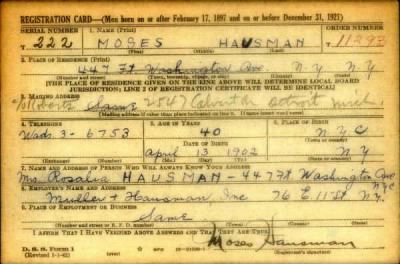 REGISTRATION CARD—(Men born on or after February 17, 1897 and on or before December 31, 1921)
SERIAL NUMBER 1. NAME (Print) ORDER NUMBER
T 222 MOSES HAUSMAN 11293
(First) (Middle) (Last)
2. PLACE OF RESIDENCE (Print)
447 Ft. Washington Ave N.Y. N.Y.
(Number and street) (Town, township, village, or city) (County) (State)
[THE PLACE OF RESIDENCE GIVEN ON THE LINE ABOVE WILL DETERMINE LOCAL BOARD
JURISDICTION; LINE 2 OF REGISTRATION CERTIFICATE WILL BE IDENTICAL]
3. MAILING ADDRESS
Same 2547 Calvert Detroit Mich.
[Mailing address if other than place indicated on line 2. If same insert word same]
4. TELEPHONE 5. AGE IN YEARS 6. PLACE OF BIRTH
Wads. 3-6753 40 N.Y.C.
DATE OF BIRTH (Town or county)
April 13 1902 N.Y.
(Exchange) (Number) (Mo.) (Day) (Yr.) (State or country)
7. NAME AND ADDRESS OF PERSON WHO WILL ALWAYS KNOW YOUR ADDRESS
Mrs. Rosalie HAUSMAN - 447 Ft Washington Ave NYC
8. EMPLOYER'S NAME AND ADDRESS
Muller + Hausman Inc 76 E 11 St N.Y.
9. PLACE OF EMPLOYMENT OR BUSINESS
Same
(Number and street or R. F. D. number) (Town) (County) (State)
I AFFIRM THAT I HAVE VERIFIED ABOVE ANSWERS AND THAT THEY ARE TRUE.
D. S. S. Form 1 Moses Hausman
(Revised 1-1-42) (over) (Registrant's signature)